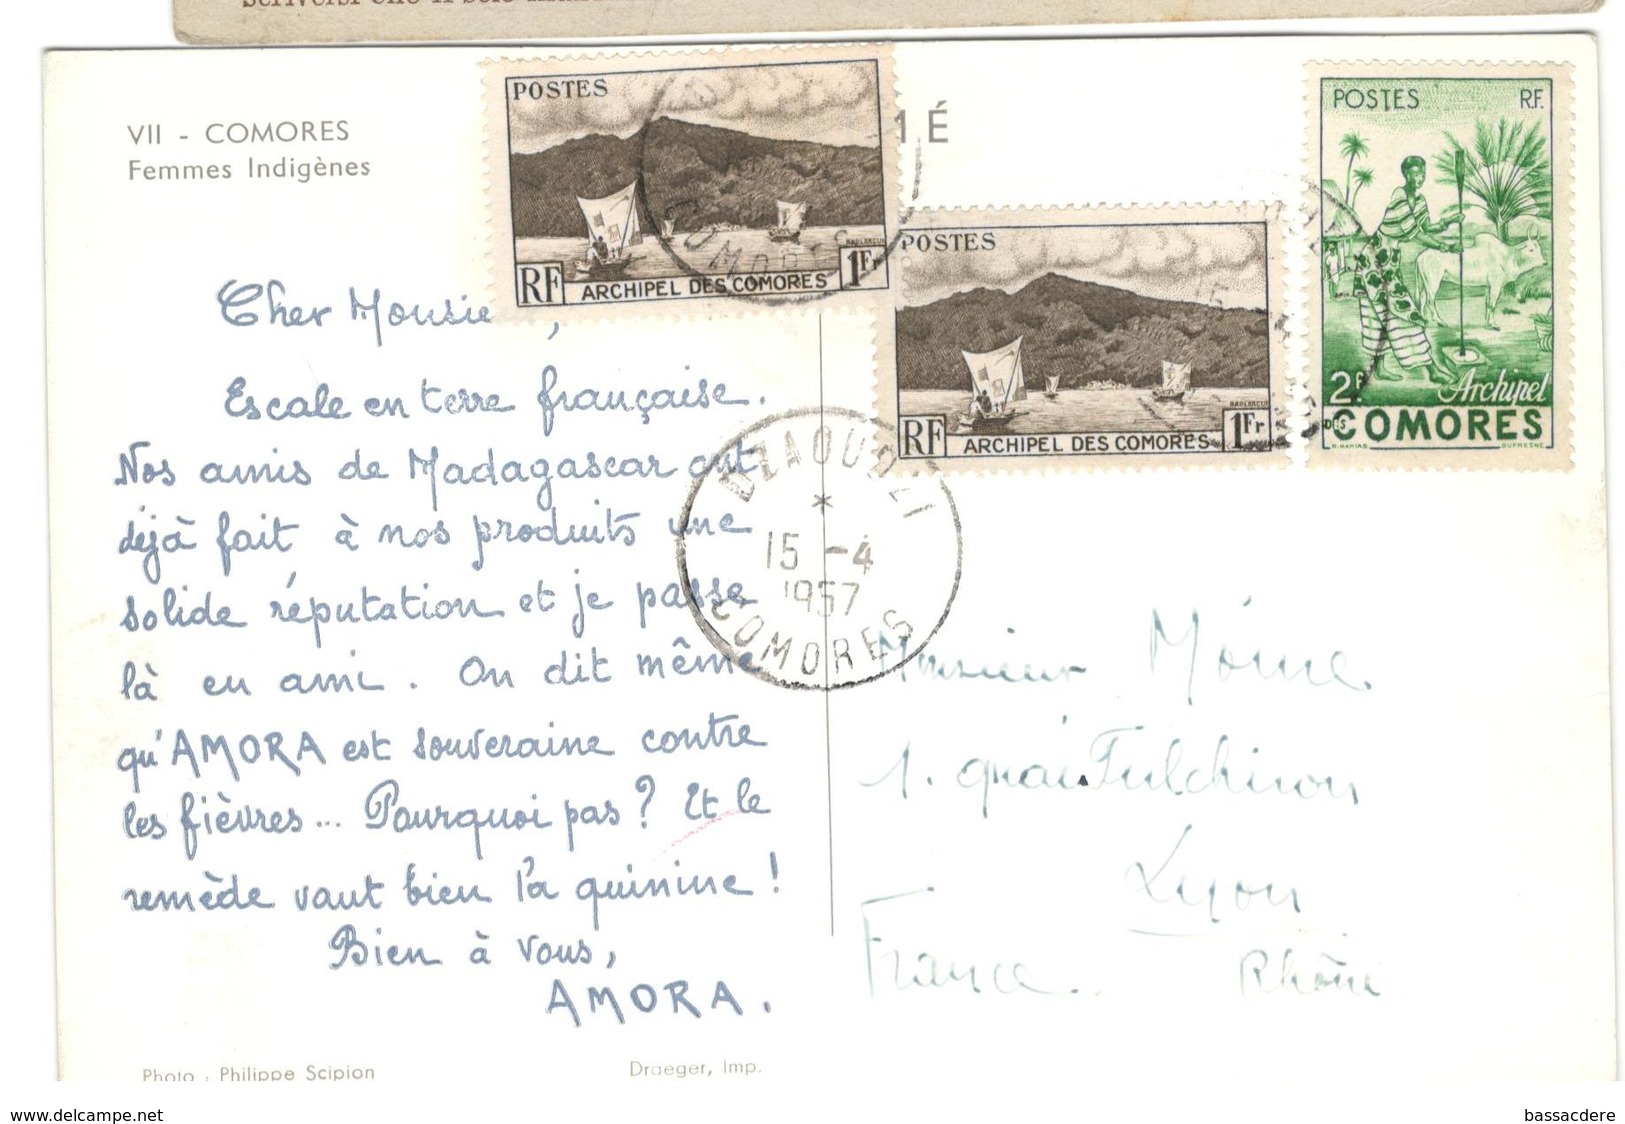 scriversi che il sole
VII - COMORES
Femmes Indigènes
MÉ
POSTES
RF
ARCHIPEL DES COMORES
1Fr
COMORES
POSTES
RF
ARCHIPEL DES COMORES
1Fr
POSTES
R.F.
2f
Archipel
DES
COMORES
Cher Monsie ,
Escale en terre française.
Nos amis de Madagascar ont
déjà fait à nos produits une
solide réputation et je passe
là en ami. On dit même
qu'AMORA est souveraine contre
les fièvres... Pourquoi pas? Et le
remède vaut bien la quinine!
Bien à vous,
AMORA.
DZAOUDZI
15 -4
1957
COMORES
Monsieur
1. quai Fulchiron
Lyon
France. Rhône
Photo : Philippe Scipion
Draeger, Imp.
www.delcampe.net
bassacdere